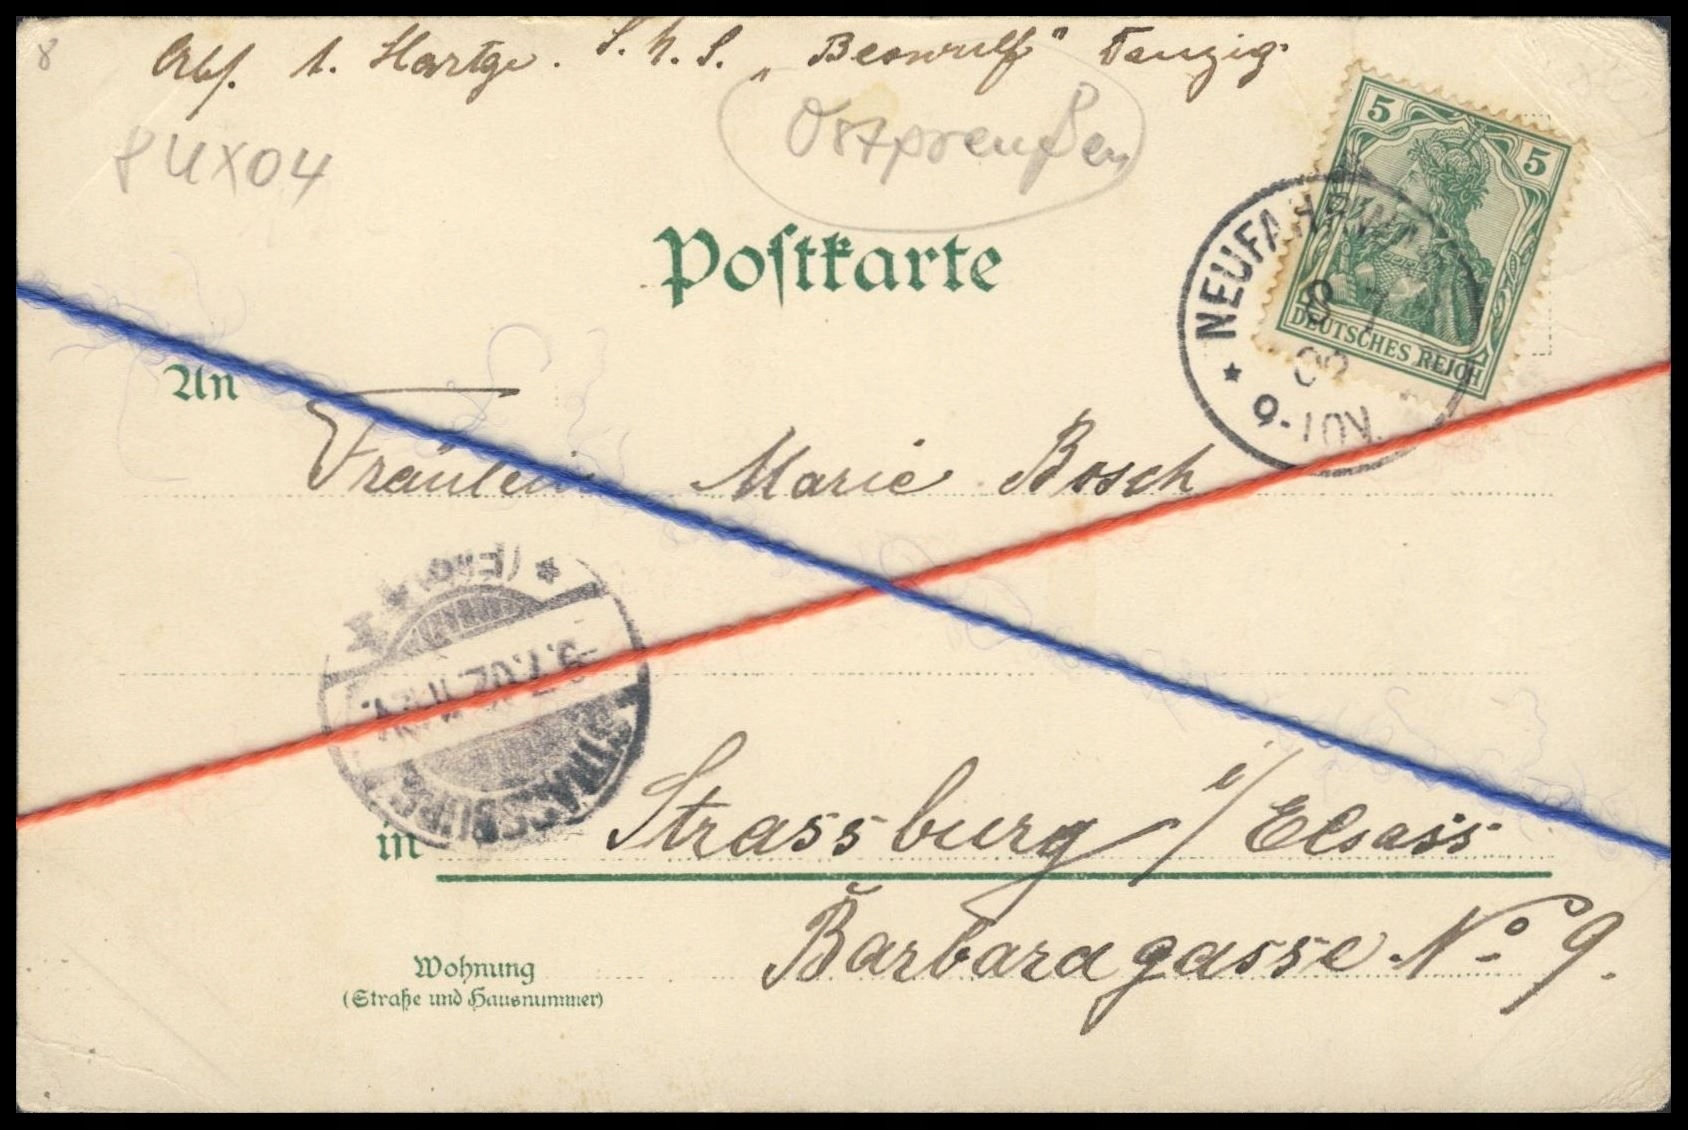 8
Abs. A. Hartge. S.M.S. „Beowulf" Danzig.
Ostpreußen
PUX04
5 5
DEUTSCHES REICH
Postkarte
* NEUFAHRW
8 7
02
9-10V.
An
Fräulein Marie Bosch
* (ELS.) *
9.7.02.
STRASSBURG
in Strassburg i/Elsass
Barbaragasse No 9.
Wohnung
(Straße und Hausnummer)